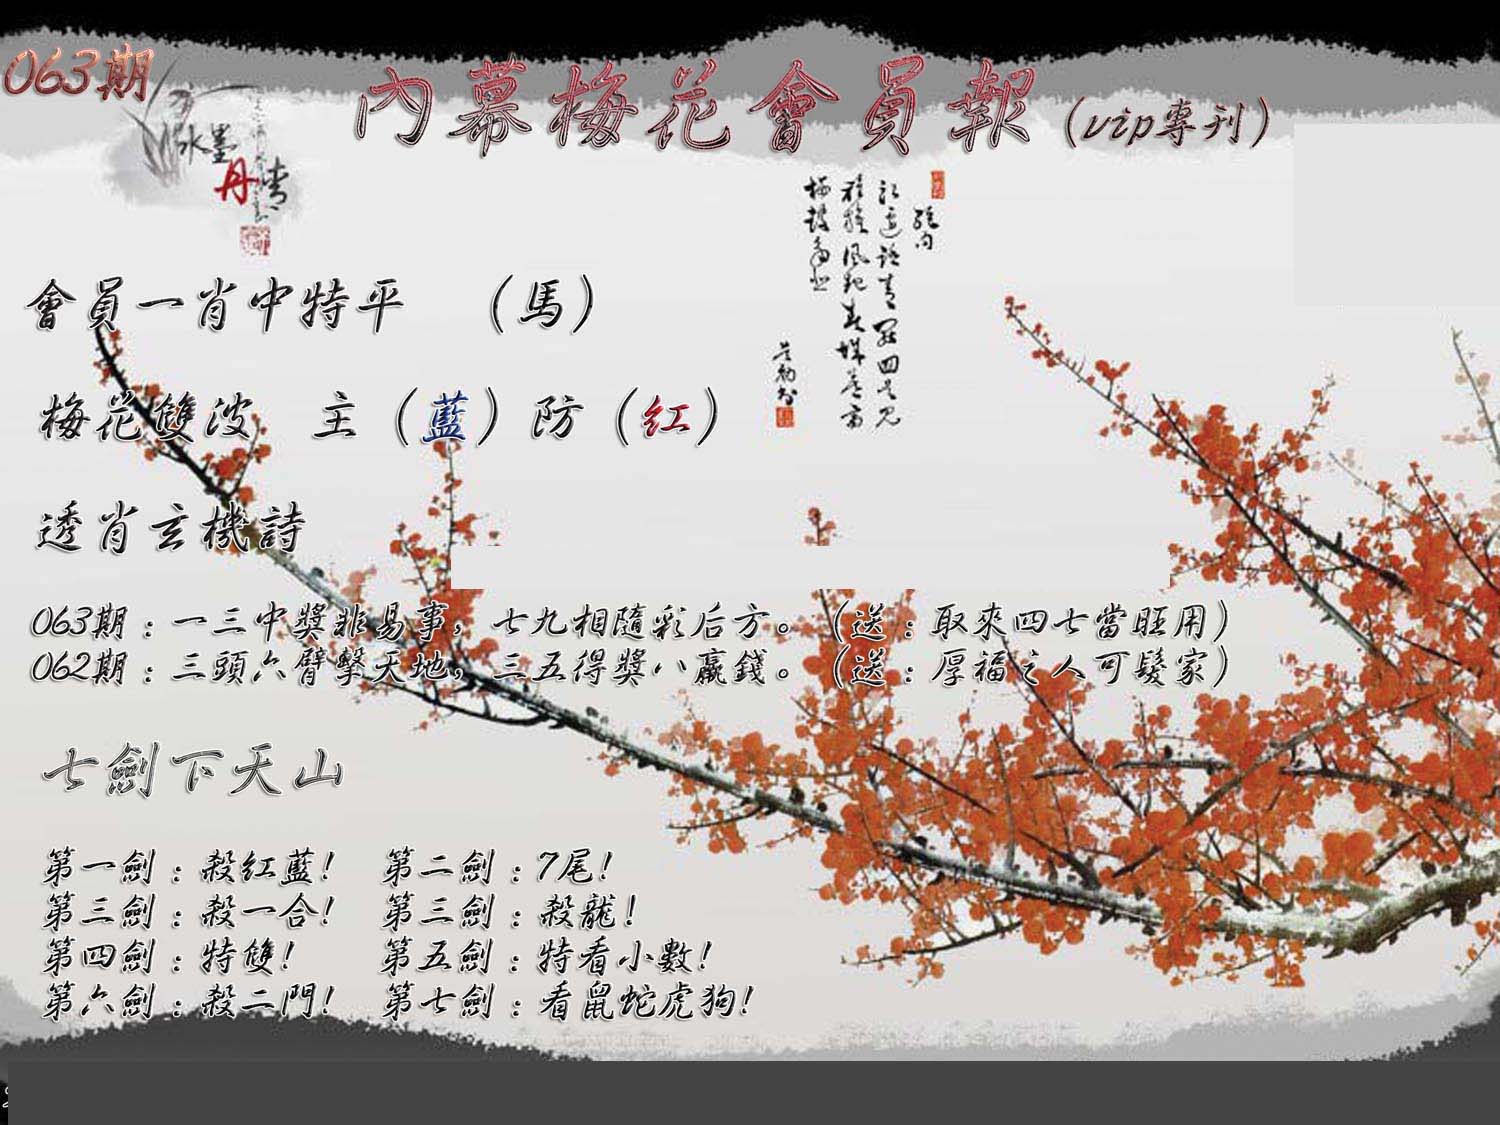 063期
內幕梅花會員報（vip專刊）
水墨
丹青
會員一肖中特平　（馬）
梅花雙波　主（藍）防（紅）
透肖玄機詩
063期：一三中獎非易事，七九相隨彩后方。（送：取來四七當旺用）
062期：三頭六臂擊天地，三五得獎八贏錢。（送：厚福之人可髮家）
七劍下天山
第一劍：殺紅藍！　第二劍：7尾！
第三劍：殺一合！　第三劍：殺龍！
第四劍：特雙！　第五劍：特看小數！
第六劍：殺二門！　第七劍：看鼠蛇虎狗！